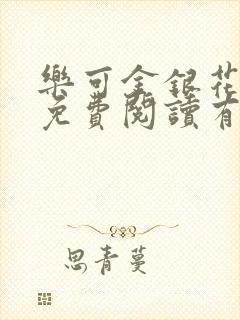 樂可金銀花
免費閱讀有
思青蔓